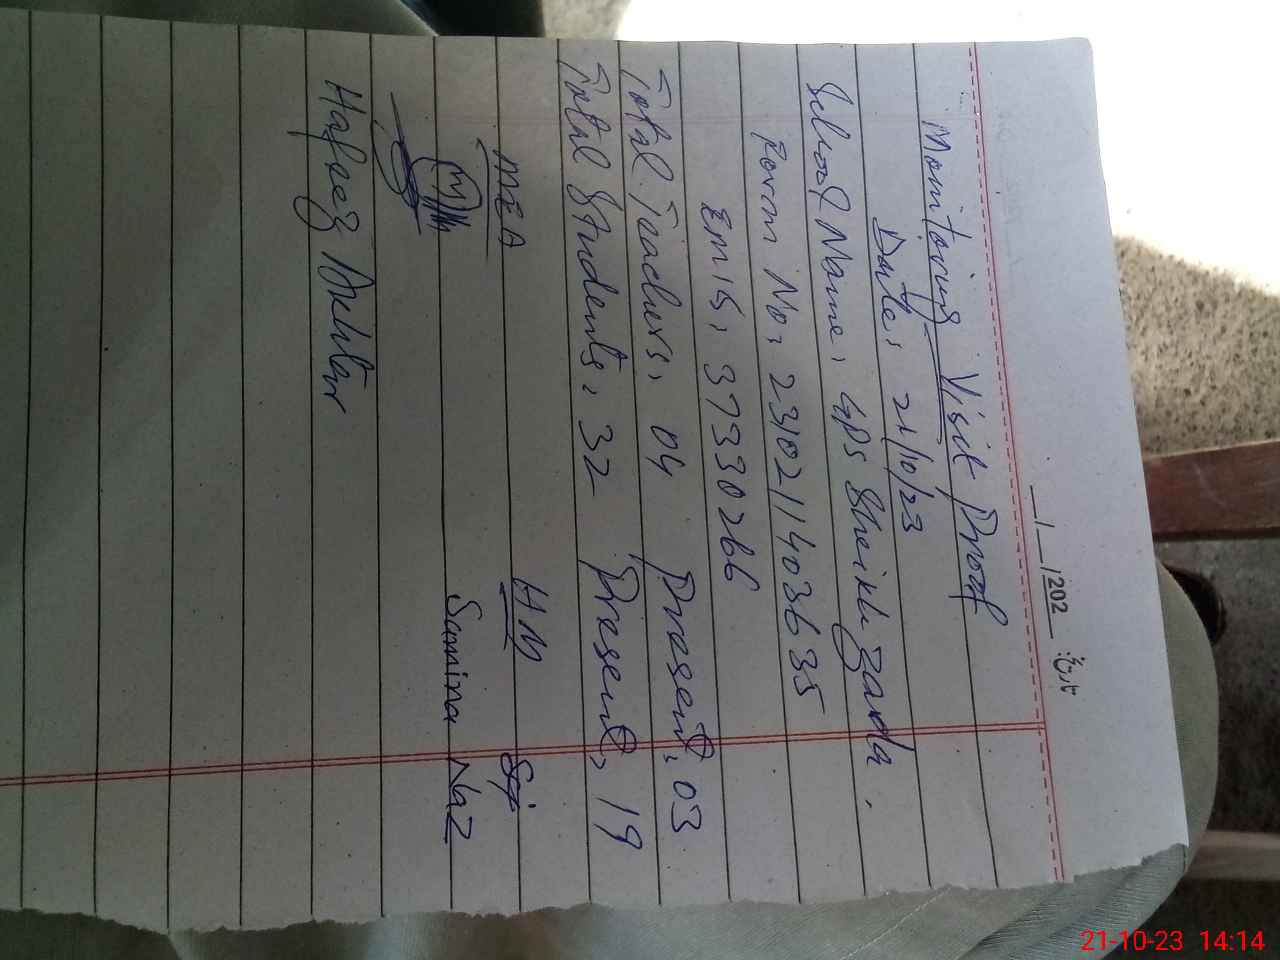 ___/___/202__ تاریخ:
Monitoring Visit Proof
Date: 21/10/23
School Name: GPS Sheikh Zada.
Form No: 23102114036 35
Emis: 37330266
Total Teachers: 04 Present: 03
Total Students: 32 Present: 19
MEA HM
Samina Naz
Hafeez Akhtar
21-10-23 14:14